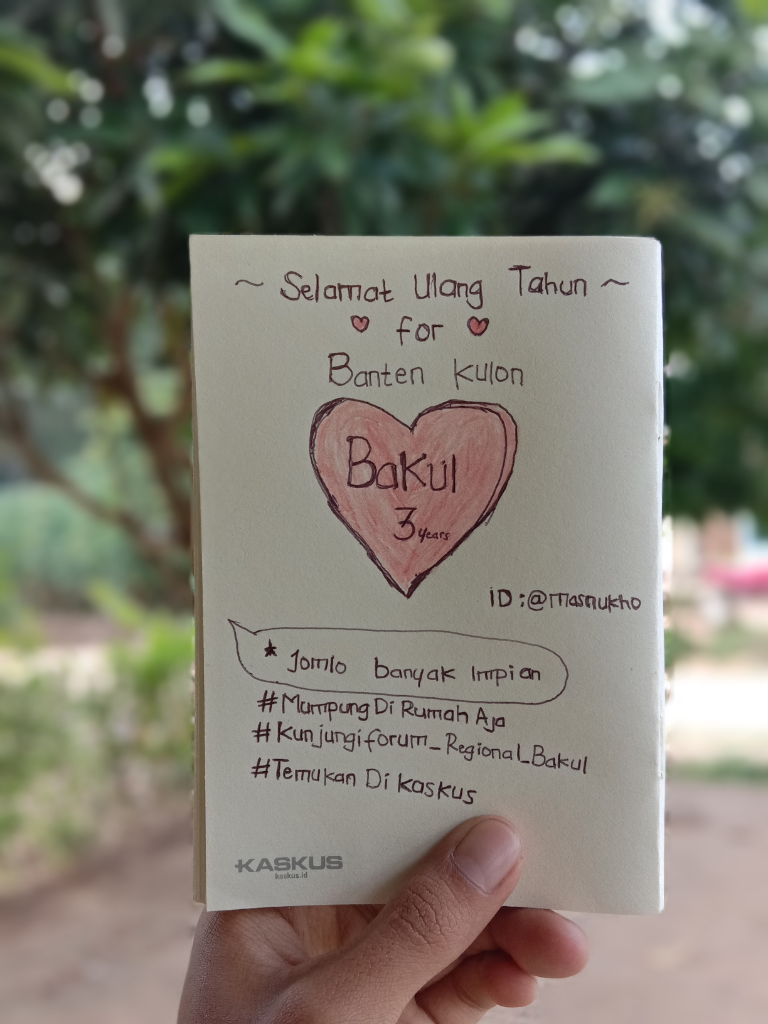 ~ Selamat Ulang Tahun ~
for
Banten Kulon
Bakul
3 years
ID :@masnukho
* Jomlo banyak Impian
#Mumpung Di Rumah Aja
#Kunjungiforum_Regional_Bakul
#Temukan Di Kaskus
KASKUS
kaskus.id